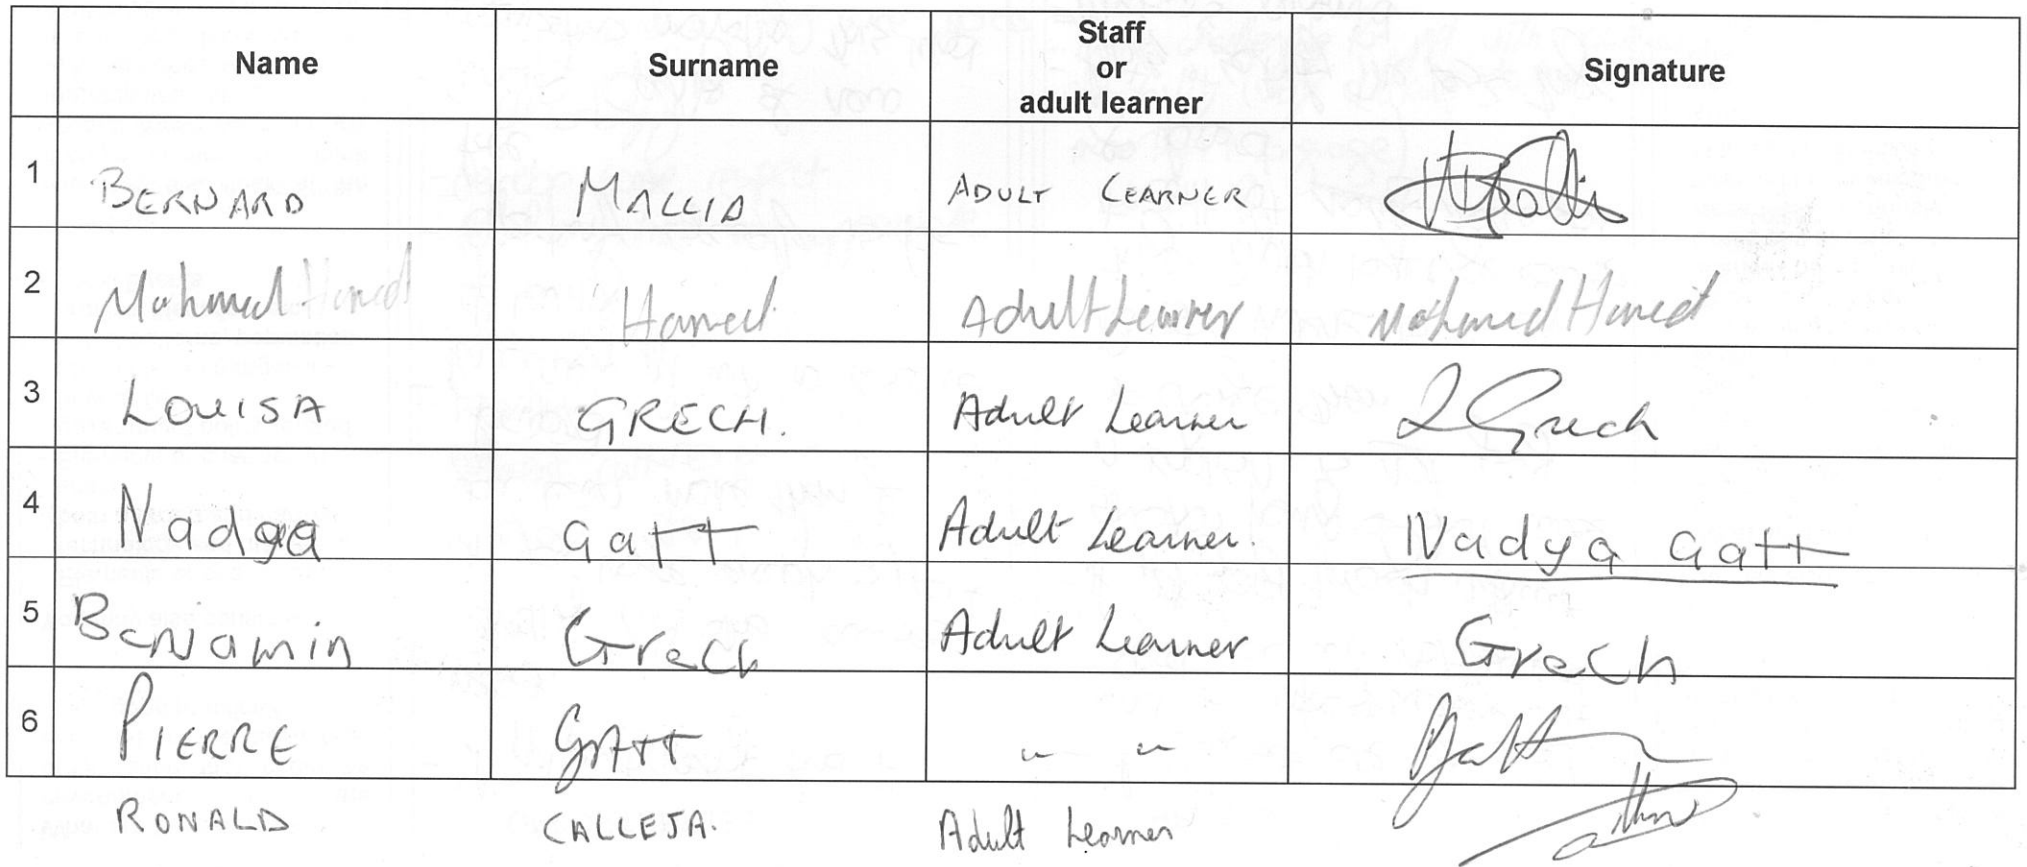 Name Surname Staff or adult learner Signature
1 BERNARD MALLIA ADULT LEARNER
2 Mohamed Hamed Hamed Adult Learner Mohamed Hamed
3 LOUISA GRECH. Adult Learner L Grech
4 Nadya Gatt Adult Learner Nadya Gatt
5 Benjamin Grech Adult Learner Grech
6 PIERRE GATT " " PGatt
RONALD CALLEJA. Adult Learner